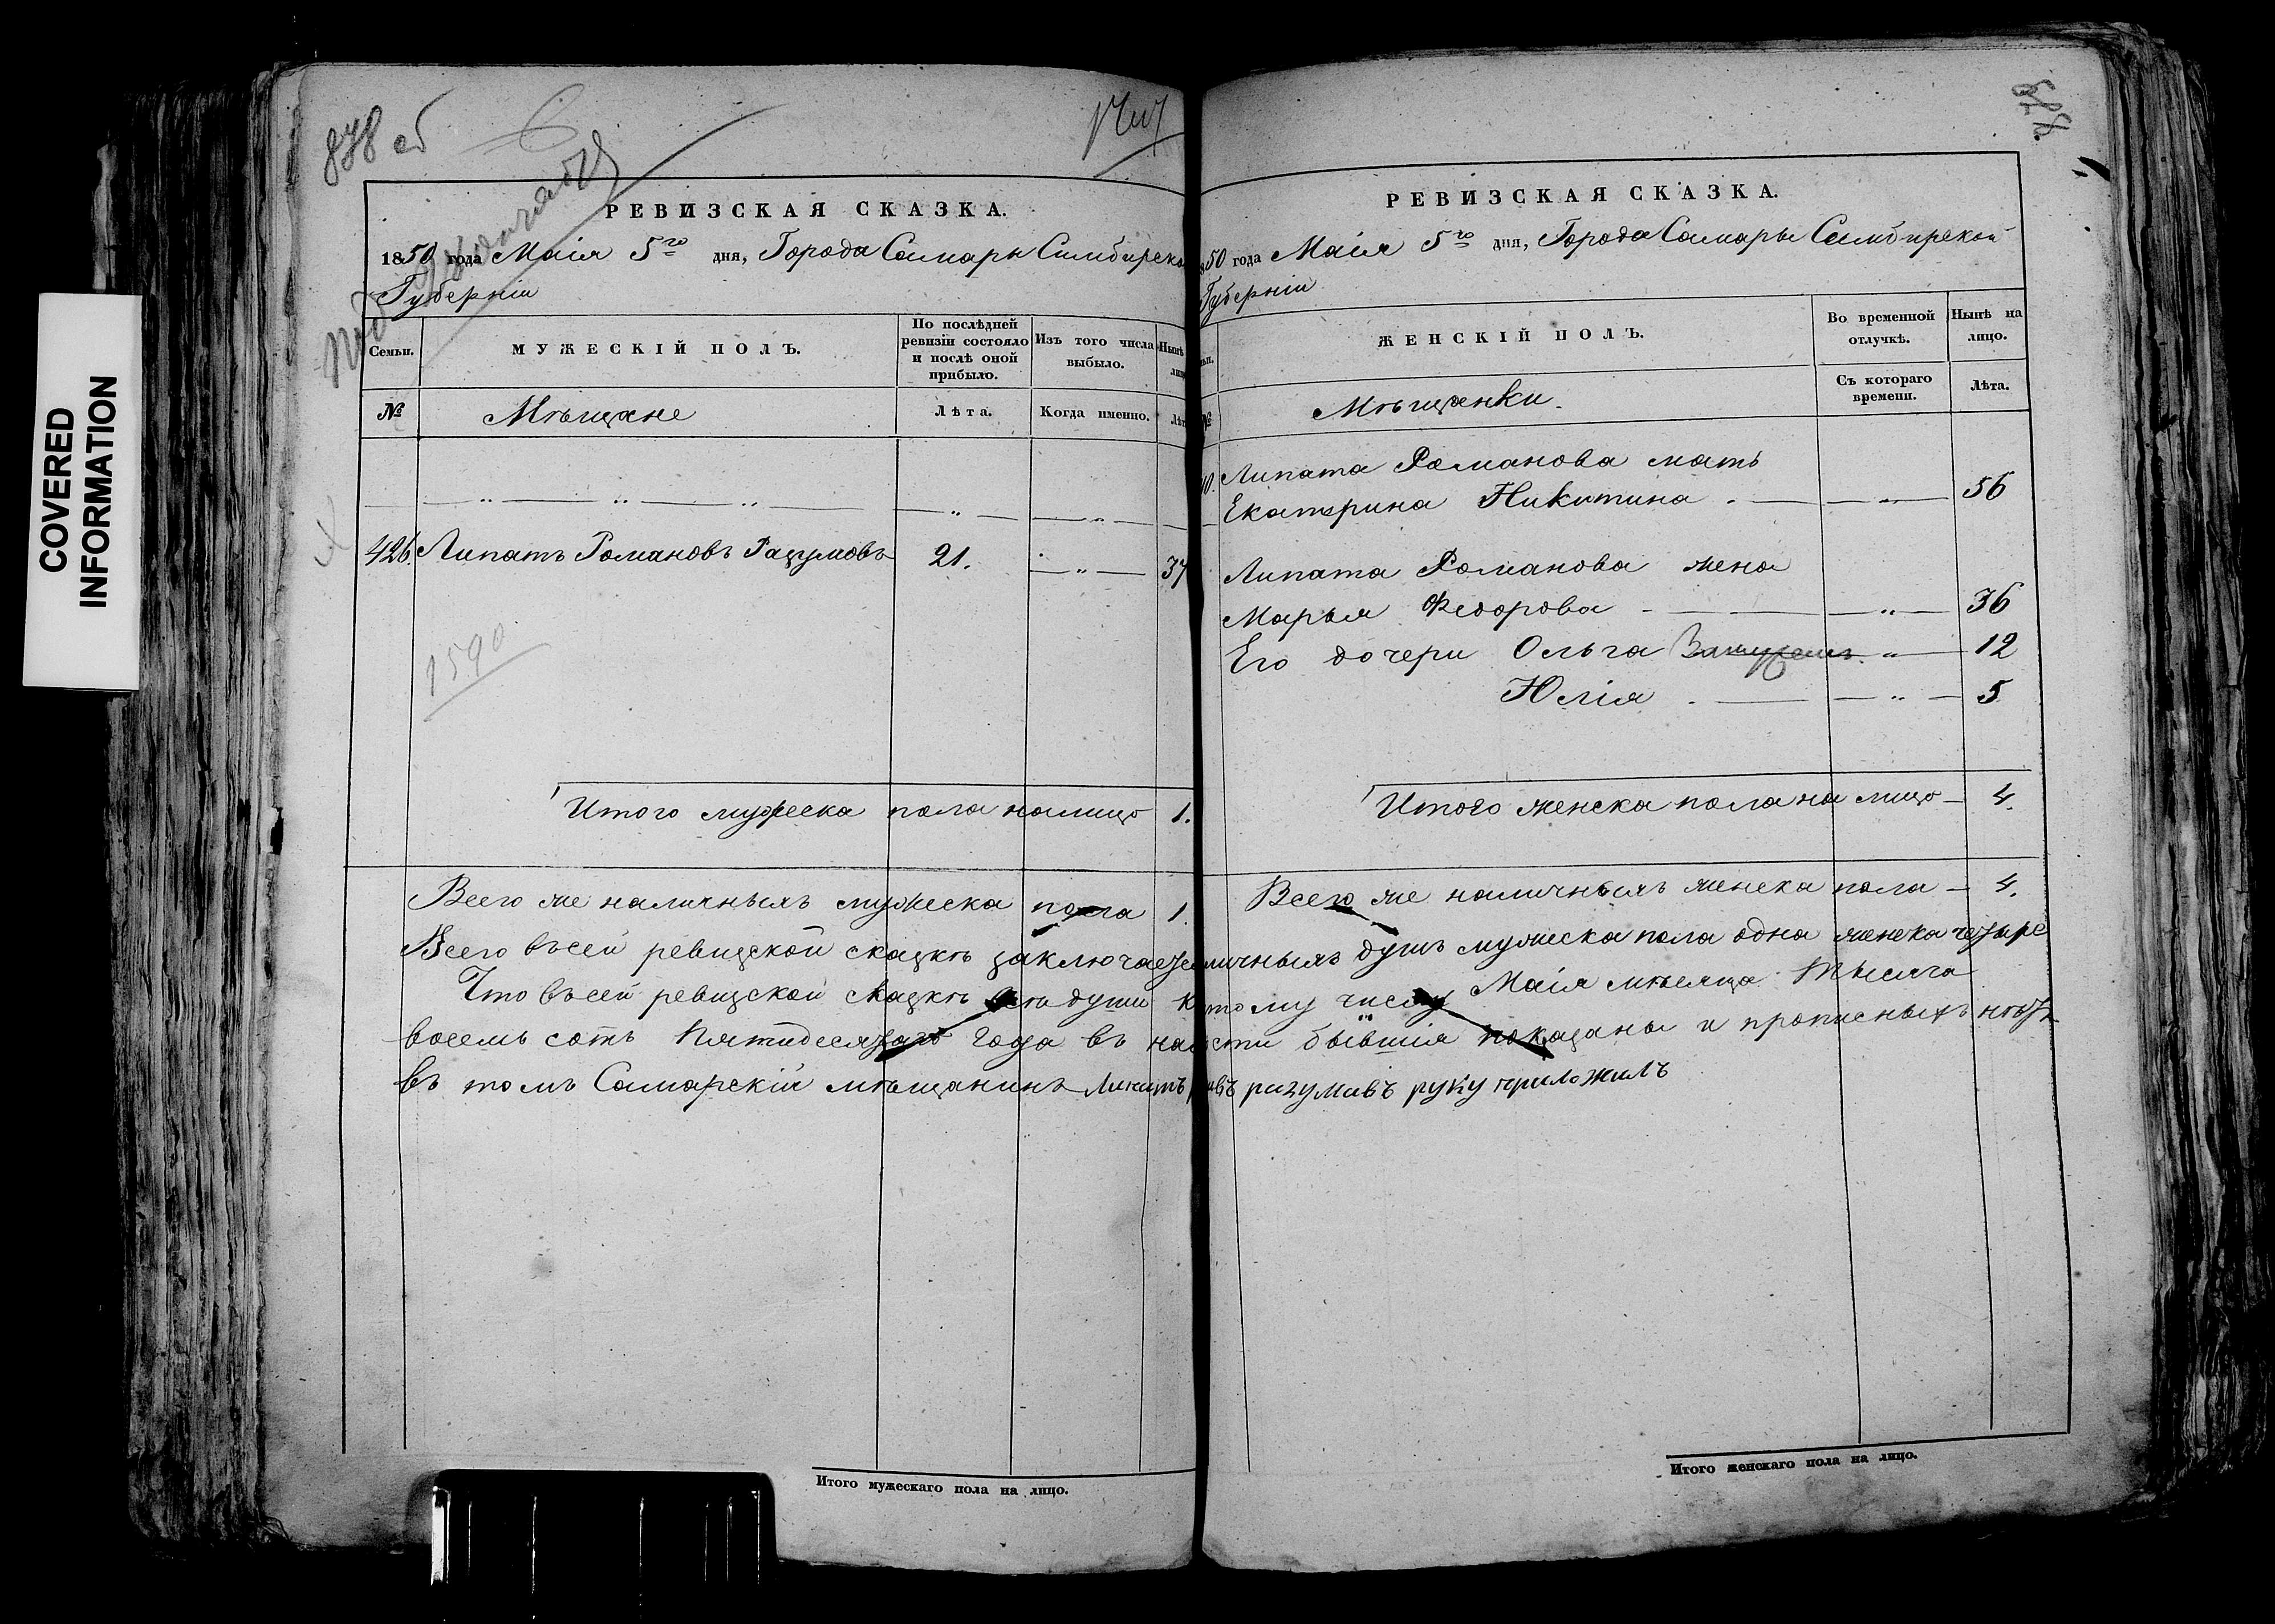 COVERED
INFORMATION
878 об
РЕВИЗСКАЯ СКАЗКА.
1850 года Маія 5го дня, Города Самары Симбирско
Губерніи
Семьи.
МУЖЕСКІЙ ПОЛЪ.
По послѣдней ревизіи состояло и послѣ оной прибыло.
Изъ того числа выбыло.
Нынѣ
лиц
№
Мѣщане
Лѣта.
Когда именно.
Лѣт
426. Липатъ Романовъ Разумовъ 21. — " — 37
1590
Итого мужеска пола налицо 1.
Всего же наличныхъ мужеска пола 1.
Всего въсей ревизской сказкѣ заключается
Что въсей ревизской сказкѣ всѣ души к
восемь сотъ Пятидесятаго года въ на
въ томъ Самарскій мѣщанинъ Липатъ
Итого мужескаго пола на лицо.
РЕВИЗСКАЯ СКАЗКА.
50 года Маія 5го дня, Города Самары Симбирской
Губерніи
ЖЕНСКІЙ ПОЛЪ.
Во временной отлучкѣ.
Нынѣ на лицо.
№
Мѣщанки.
Съ котораго времени.
Лѣта.
Липата Романова мать
Екатерина Никитина — " — 56
Липата Романова жена
Марья Федорова — " — 36
Его дочери Ольга " — 12
Юлія — " — 5
Итого женска пола на лицо — 4.
Всего же наличныхъ женска пола — 4.
личныхъ душъ мужеска пола одна женска четыре
тому числу Маія мѣсяца тысяча
сти бывшія показаны и прописныхъ нѣтъ
разумовъ руку приложилъ
Итого женскаго пола на лицо.